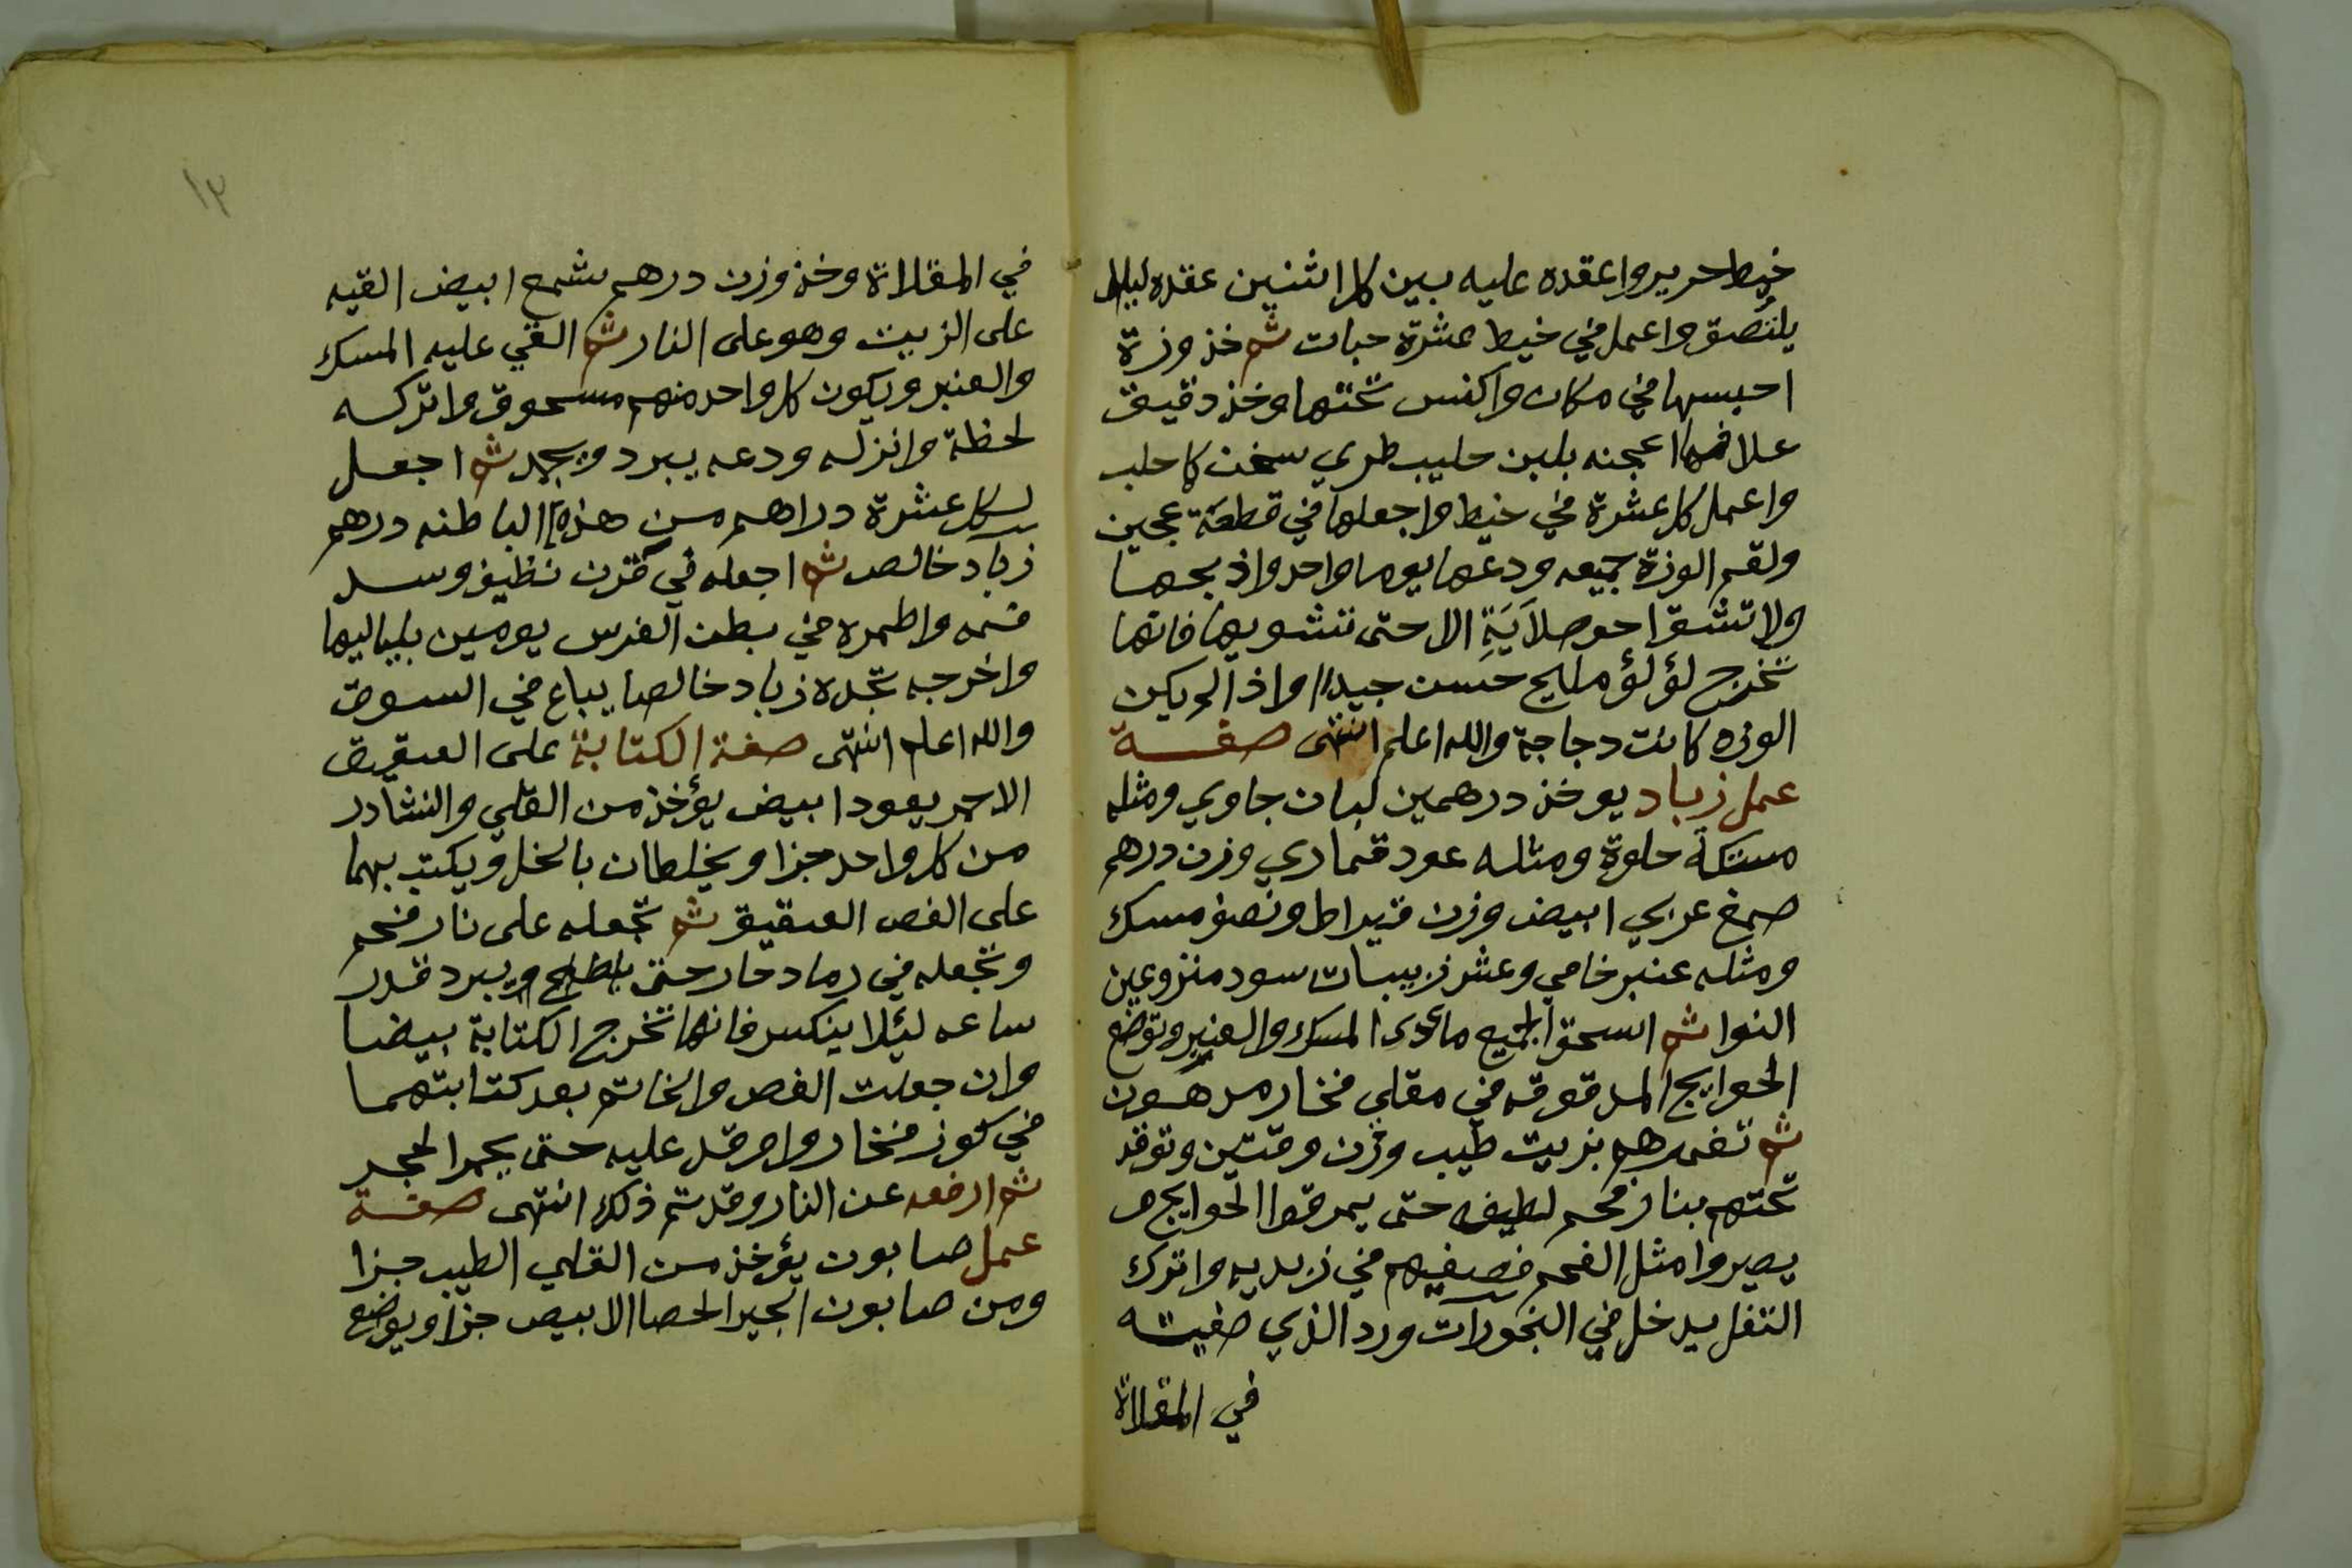 خيط حرير واعقده عليه بين كل اثنين عقده ليلا
يلتصق واعمل في خيط عشرة حبات ثم خذ وزة
احبسها في مكان واكنس تحتها وخذ دقيق
علافه اعجنه بلبن حليب طري سخن كما حلب
واعمل كل عشرة في خيط واجعلها في قطعة عجين
ولقم الوزة جميعه ودعها يوما واحد واذبحها
ولا تشق احوصلاية الا حتى تشويها فانها
تخرج لؤلؤ مليح حسن جيدا واذا لم يكن
الوزه كانت دجاجة والله اعلم انتهى صفة
عمل زباد يوخذ درهمين لبان جاوي ومثله
مستكة حلوة ومثله عود قماري وزن درهم
صمغ عربي ابيض وزن قيراط ونصف مسك
ومثله عنبر خامي وعشر زبيبات سود منزوعين
النوا ثم اسحق الجميع ما عدى المسك والعنبر وتوضع
الحوايج المدقوقه في مقلي فخار مدهون
ثم تغمرهم بزيت طيب وزن وقتين وتوقد
تحتهم بنار فحم لطيفه حتى يمرقوا الحوايج و
يصيروا مثل الفحم فصفيهم في زبديه واترك
التفل يدخل في البخورات ورد الذي صفيته
في المقلاة
١٢
في المقلاة وخذ وزن درهم شمع ابيض القيه
على الزيت وهو على النار ثم القي عليه المسك
والعنبر ويكون كل واحد منهم مسحوق واتركه
لحظة وانزله ودعه يبرد ويجمد ثم اجعل
لكل عشرة دراهم من هذه الباطنه درهم
زباد خالص ثم اجعله في قرن نظيف وسد
فمه واطمره في بطن الفرس يومين بلياليها
واخرجه تجده زباد خالصا يباع في السوق
والله اعلم انتهى صفة الكتابة على العقيق
الاحمر يعود ابيض يؤخذ من القلي والنشادر
من كل واحد جزا ويخلطان بالخل ويكتب بهما
على الفص العقيق ثم تجعله على نار فحم
وتجعله في رماد حار حتى ويبرد قدر
ساعه ليئلا ينكسر فانها تخرج الكتابة بيضا
وان جعلت الفص والخاتم بعد كتابتهما
في كوز فخار واوقد عليه حتى يحمر الحجر
ثم ارفعه عن النار وقد تم ذلك انتهى صفة
عمل صابون يؤخذ من القلي الطيب جزا
ومن صابون الجير الحصا الابيض جزا ويوضع